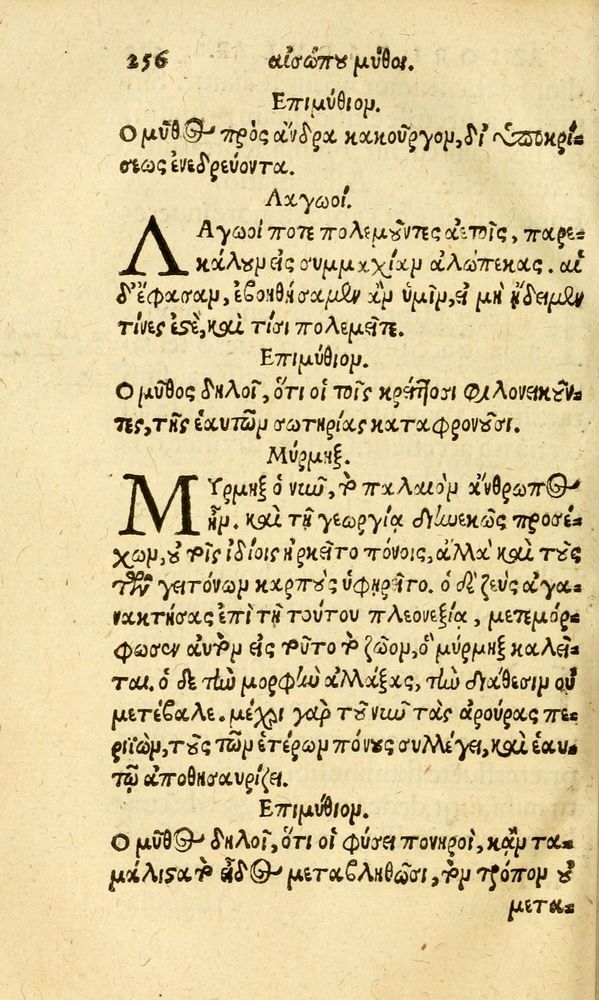 256 αἰσώπου μῦθοι.
Επιμύθιομ.
Ο μῦθος πρὸς ἄνδρα κακοῦργομ, δι' ὑποκρί=
σεως ἐνεδρεύοντα.
Λαγωοί.
ΛΑγωοί ποτε πολεμοῦντες ἀετοῖς, παρε=
κάλουμ εἰς συμμαχίαμ ἀλώπεκας. αἱ
δ' ἔφασαμ, ἐβοηθήσαμεν ἂμ ὑμῖμ, εἰ μὴ ᾔδειμεν
τίνες ἐστὲ, καὶ τίσι πολεμεῖτε.
Επιμύθιομ.
Ο μῦθος δηλοῖ, ὅτι οἱ τοῖς κρείττοσι φιλονεικοῦν=
τες, τῆς ἑαυτῶμ σωτηρίας καταφρονοῦσι.
Μύρμηξ.
ΜΥρμηξ ὁ νῦν, τὸ παλαιὸμ ἄνθρωπος
ἦμ. καὶ τῇ γεωργίᾳ διηνεκῶς προσέ=
χωμ, οὐ τοῖς ἰδίοις ἠρκεῖτο πόνοις, ἀλλὰ καὶ τοὺς
τῶν γειτόνωμ καρποὺς ὑφῃρεῖτο. ὁ δὲ ζεὺς ἀγα=
νακτήσας ἐπὶ τῇ τούτου πλεονεξίᾳ, μετεμόρ=
φωσεν αὐτὸμ εἰς τοῦτο τὸ ζῶομ, ὃ μύρμηξ καλεῖ=
ται. ὁ δὲ τὴν μορφὴν ἀλλάξας, τὴν διάθεσιμ οὐ
μετέβαλε. μέχρι γὰρ τοῦ νῦν τὰς ἀρούρας πε=
ριϊὼμ, τοὺς τῶμ ἑτέρωμ πόνους συλλέγει, καὶ ἑαυ=
τῷ ἀποθησαυρίζει.
Επιμύθιομ.
Ο μῦθος δηλοῖ, ὅτι οἱ φύσει πονηροὶ, κἂμ τα=
μάλιστα τὸ εἶδος μεταβληθῶσι, τὸμ τρόπομ οὐ
μετα=